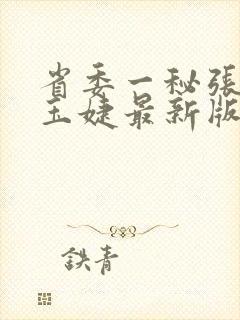 省委一秘張
玉婕最新版
鉄青